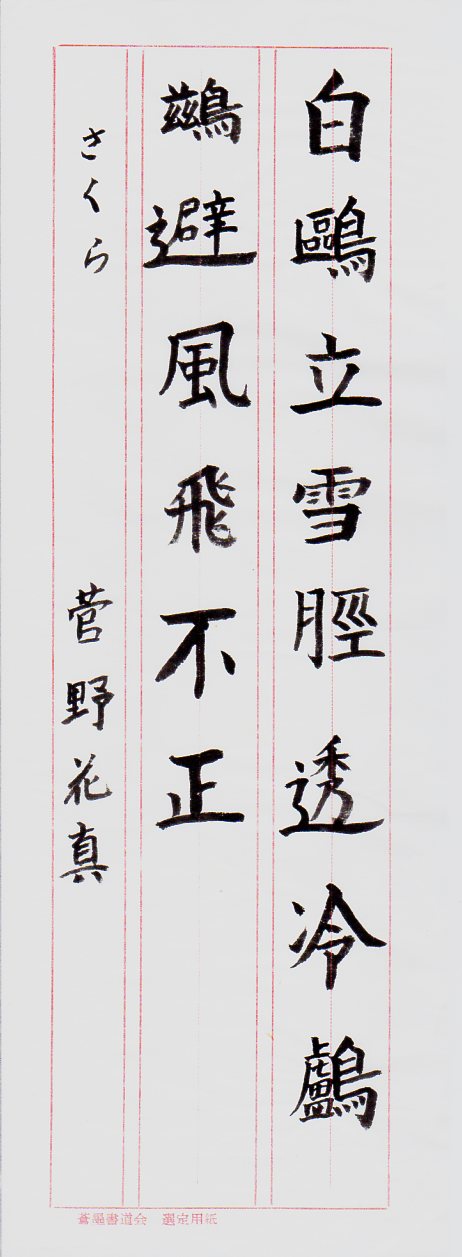 白鷗立雪脛透冷鸕
鷀避風飛不正
さくら 菅野花真
蒼墨書道会 選定用紙